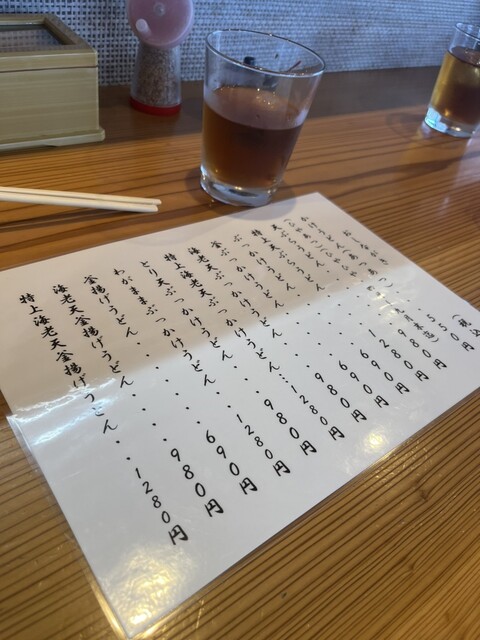 おしながき (税込
かけうどん ・550円
天ぷらうどん 980円
特上天ぷらうどん 1280円
ぶっかけうどん 690円
釜ぶっかけうどん 690円
海老天ぶっかけうどん 980円
特上海老天ぶっかけうどん・・1280円
とり天ぶっかけうどん・・・980円
わがままぶっかけうどん・・1280円
釜揚げうどん・・・・・690円
海老天釜揚げうどん・・・980円
特上海老天釜揚げうどん・・1280円